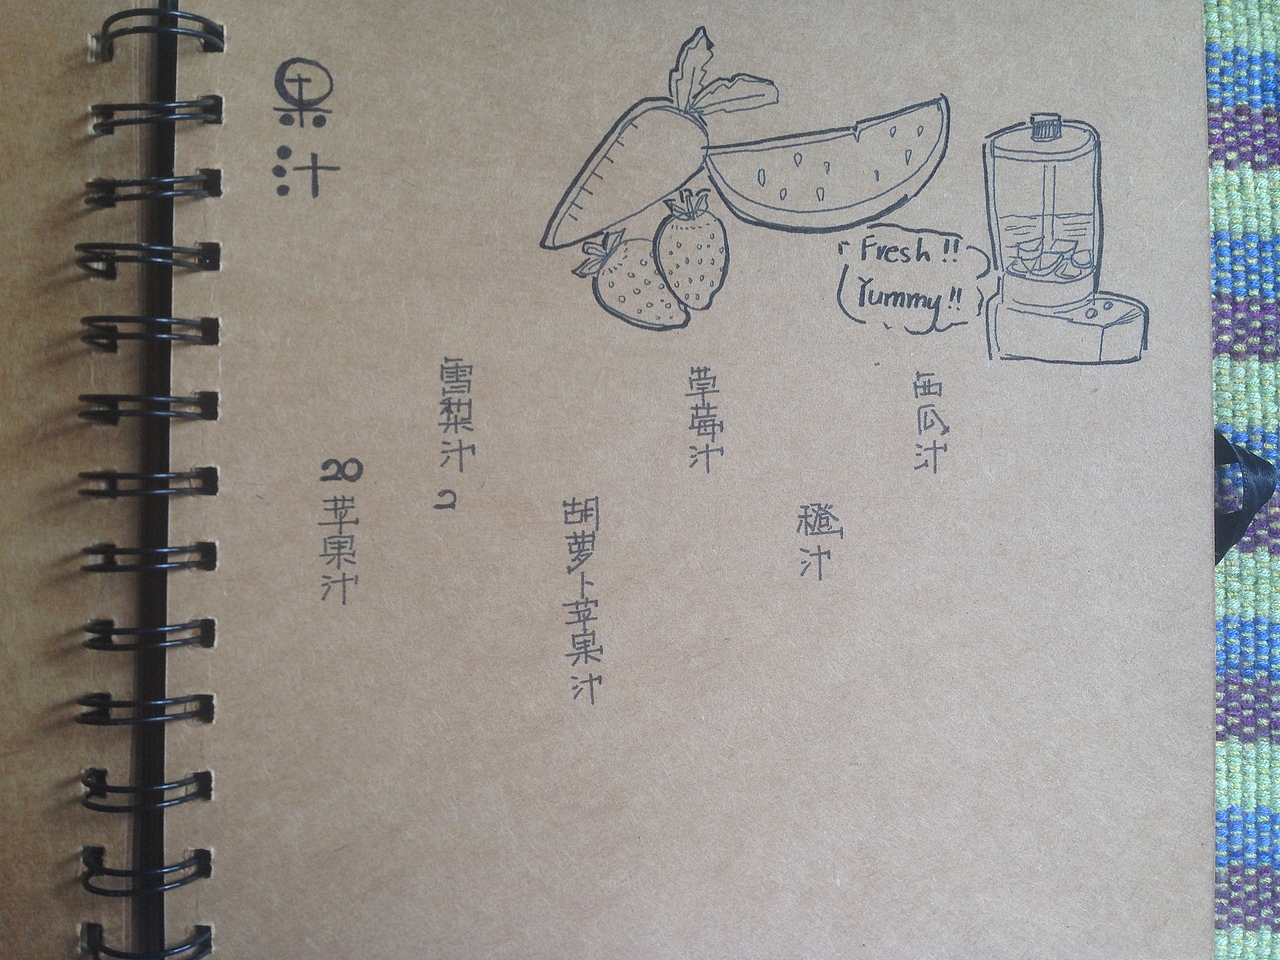 果汁
Fresh !!
Yummy !!
20
苹果汁
雪梨汁
2
胡萝卜苹果汁
草莓汁
橙汁
西瓜汁